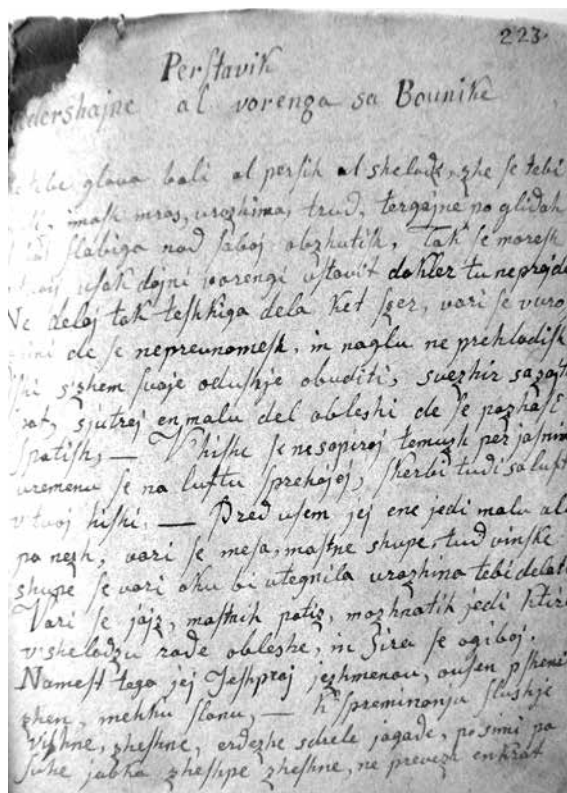 223.
Perſtavik
al vorenga sa Bounike
glava bali al perſih al shelodz, zhe ſe tebi
imaſh mras, urozhima, trud, tergajne po glidah
ſlabiga nad ſaboj obzhutiſh, Tak ſe moreſh
uſak dojni vorengi uſtavit dokler tu neprojde
Ne delaj tak teſhkiga dela ket ſzer, vari ſe vuro
de ſe neprevnomeſh, in naglu ne prehlodiſh
sizhem ſvoje oduſhje obuditi, svezhir
sjutrej en malu del obleshi de ſe pozhaſi
ſpotiſh, — V hiſhi ſe nesopiraj temuzh per jasnim
uremenu ſe na luftu ſprehojej, ſkerbi tudi sa luft
v tvoj hiſhi. — Pred uſem jej ene jedi malu ale
po nezh, vari ſe mesa, maſtne shupe, tud vinſke
shupe ſe vari oku bi utegnila urozhino tebi delat
Vari ſe jajz, maſtnih potiz, mozhnatih jedi ktire
v shelodzu rade obleshe, in Sira ſe ogiboj.
Nameſt tega jej Jeſhpraj jezhmenov, ouſen pſheni
zhen, mehku ſlanu, — h' ſpreminanju ſlushje
Viſhne, zheſhne, erdezhe sdrele jagade, po simi pa
ſuhe jabka zheſhpe zheſhne, ne prevezh enkrat